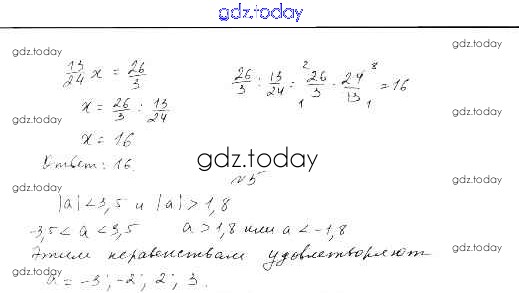 gdz.today
gdz.today
gdz.today
13/24 x = 26/3
26/3 : 13/24 = 26/3 · 24/13 = 16
2 8
1 1
x = 26/3 : 13/24
gdz.today
gdz.today
x = 16
Ответ: 16.
gdz.today
№5
gdz.today
gdz.today
|a| < 3,5 и |a| > 1,8
-3,5 < a < 3,5 a > 1,8 или a < -1,8
gdz.today
gdz.today
Этим неравенствам удовлетворяют
a = -3; -2; 2; 3.
gdz.today